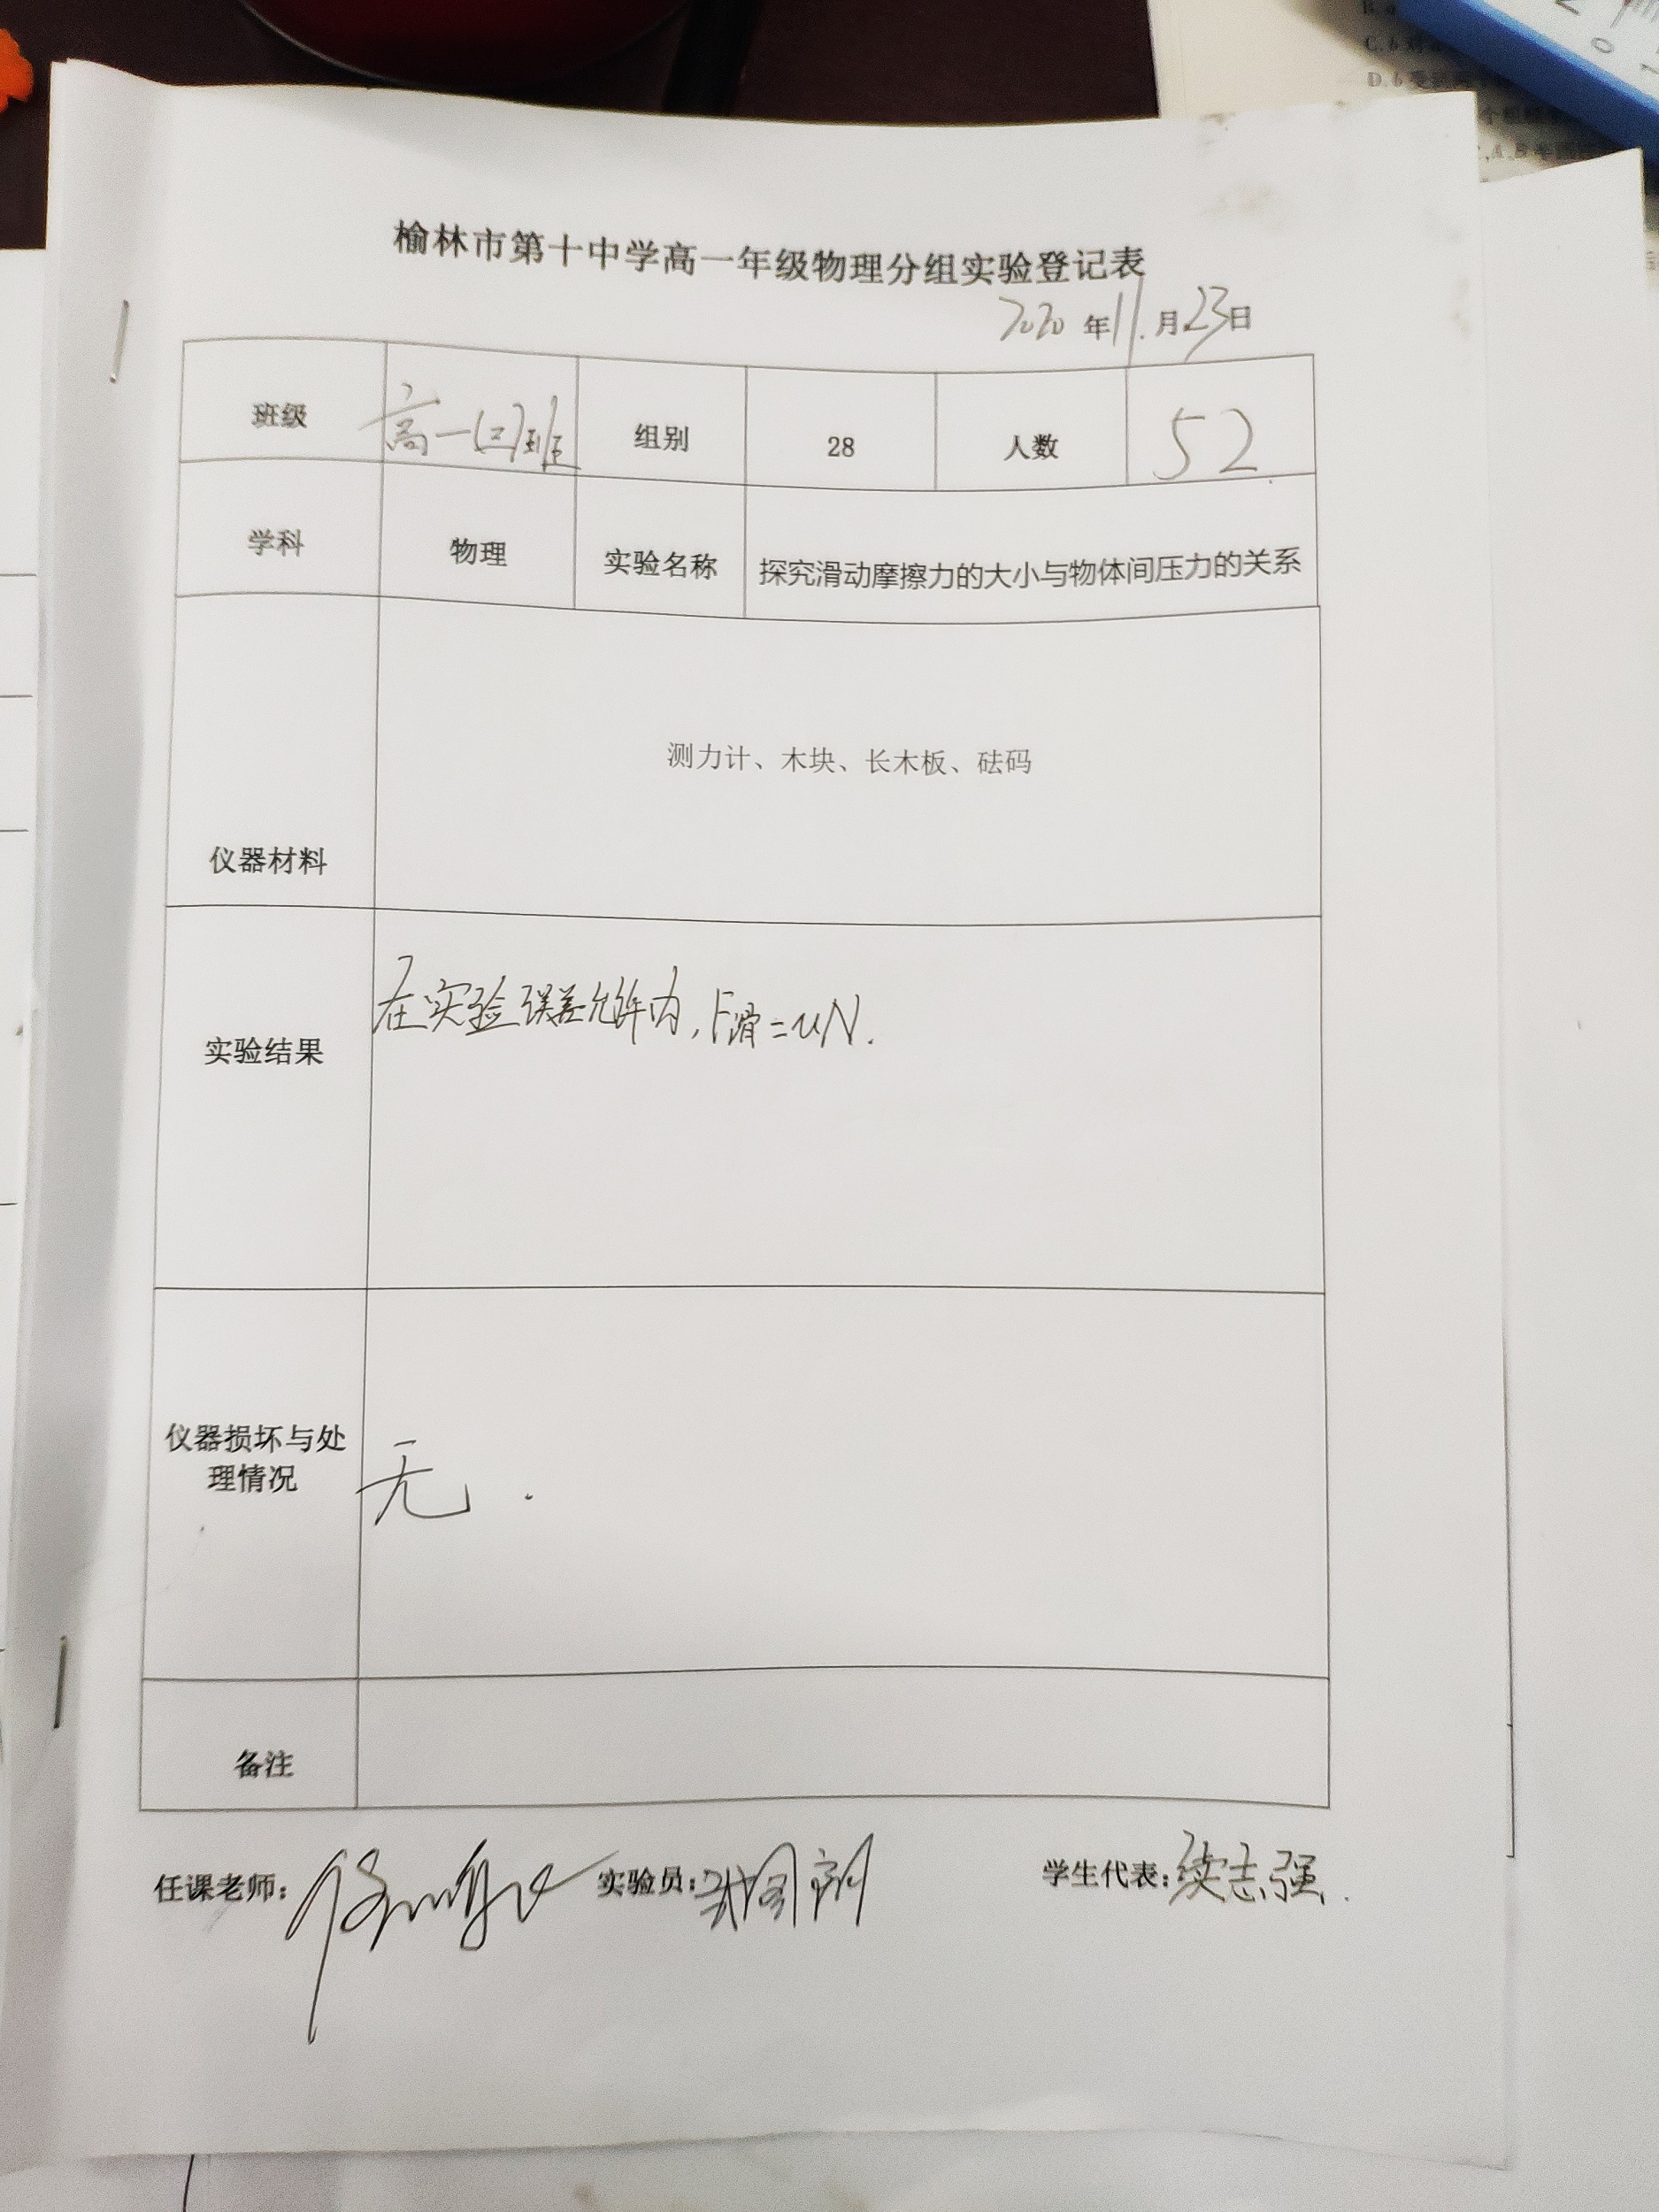 榆林市第十中学高一年级物理分组实验登记表
2020年11月23日
班级 高一(三)班 组别 28 人数 52
学科 物理 实验名称 探究滑动摩擦力的大小与物体间压力的关系
仪器材料 测力计、木块、长木板、砝码
实验结果 在实验误差允许内,F滑=uN.
仪器损坏与处
理情况
无.
备注
任课老师: 实验员: 学生代表:志强.